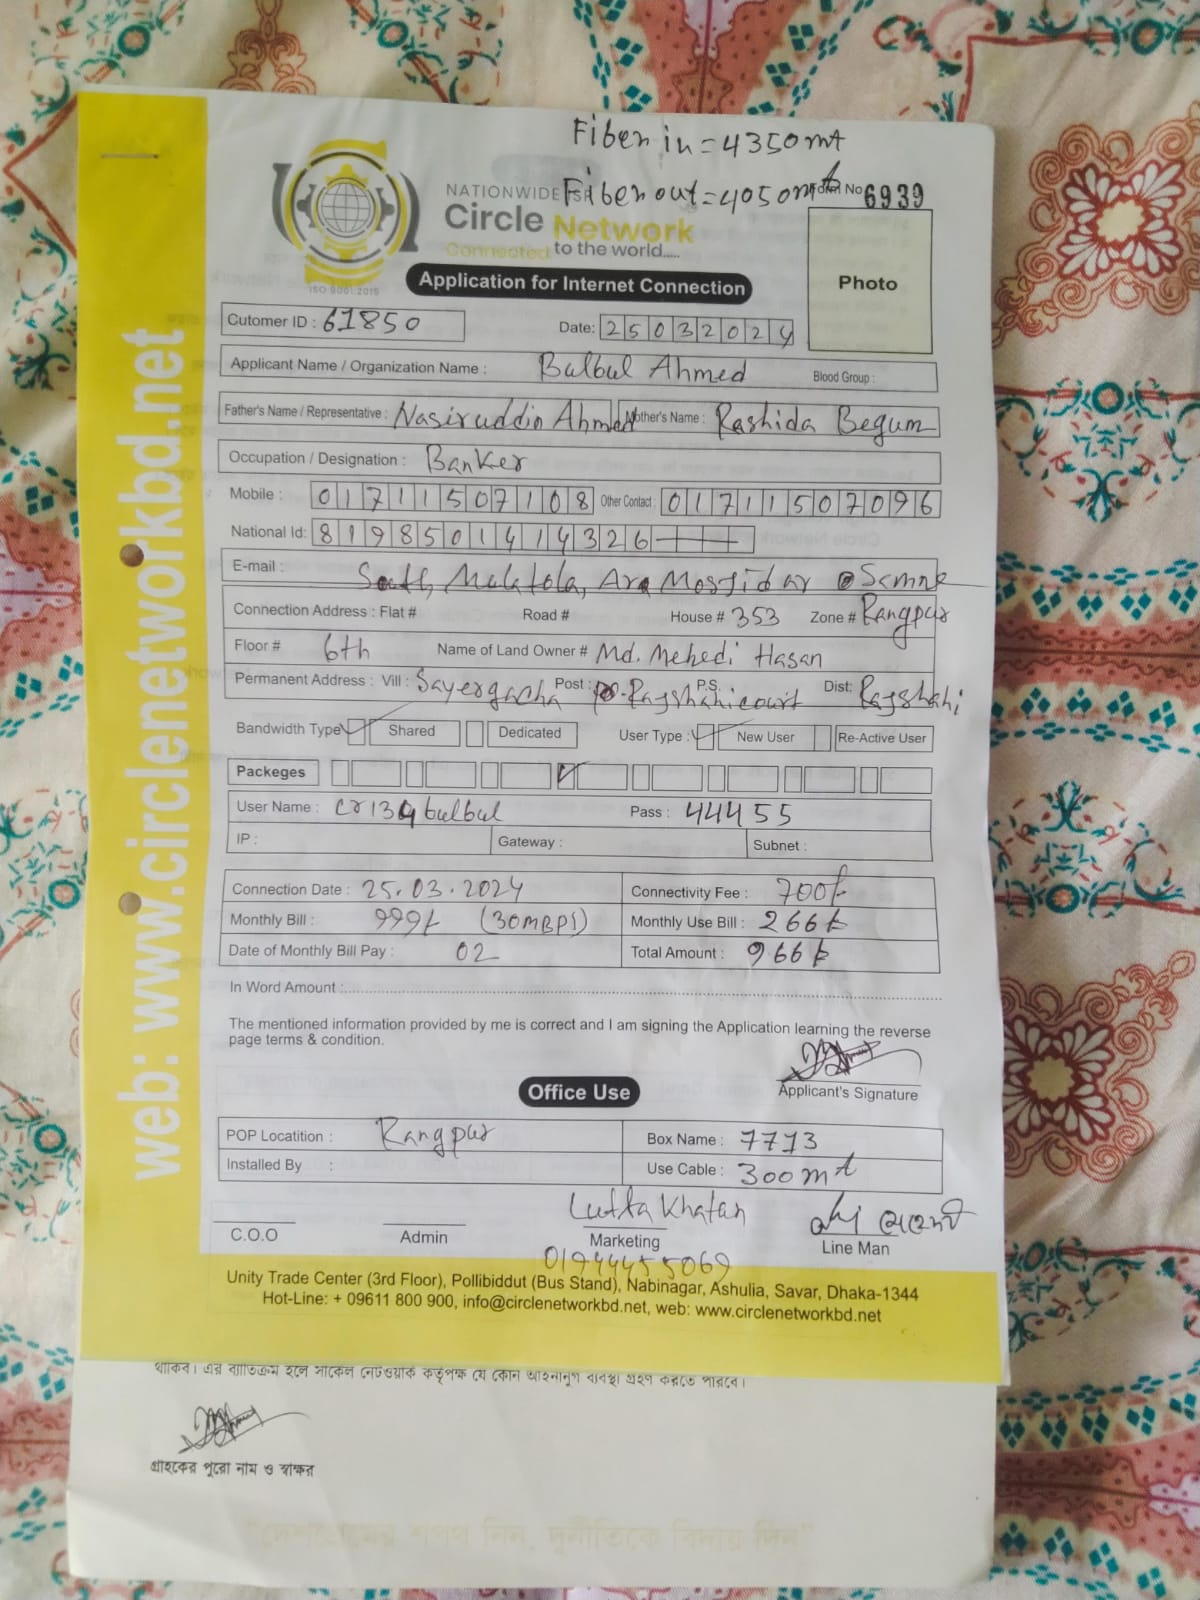 Fiber in = 4350 mt
Fiber out = 4050 mt
NATIONWIDE
Form No 6939
Circle Network
Connected to the world.....
ISO 9001:2015
Application for Internet Connection
Photo
Cutomer ID : 61850
Date: 25032024
Applicant Name / Organization Name : Bulbul Ahmed Blood Group :
Father's Name / Representative : Nasiruddin Ahmed Mother's Name : Rashida Begum
Occupation / Designation : Banker
Mobile : 01711507108 Other Contact : 01711507096
National Id: 8198501414326
E-mail : South, Mulatola, Mosjidar
Connection Address : Flat # Road # House # 353 Zone # Rangpur
Floor # 6th Name of Land Owner # Md. Mehedi Hasan
Permanent Address : Vill : Sayergacha Post : Rajshahicourt P.S. Dist: Rajshahi
Bandwidth Type Shared Dedicated User Type : New User Re-Active User
Packeges
User Name : cr139bulbul Pass : 44455
IP : Gateway : Subnet :
Connection Date : 25.03.2024 Connectivity Fee : 700/-
Monthly Bill : 999/- (30MBPS) Monthly Use Bill : 266/-
Date of Monthly Bill Pay : 02 Total Amount : 966/-
In Word Amount :
The mentioned information provided by me is correct and I am signing the Application learning the reverse
page terms & condition.
Applicant's Signature
Office Use
POP Locatition : Rangpur Box Name : 7713
Installed By : Use Cable : 300 mt
Lutfa Khatan
C.O.O Admin Marketing Line Man
01944455069
Unity Trade Center (3rd Floor), Pollibiddut (Bus Stand), Nabinagar, Ashulia, Savar, Dhaka-1344
Hot-Line: + 09611 800 900, info@circlenetworkbd.net, web: www.circlenetworkbd.net
web: www.circlenetworkbd.net
থাকিব। এর ব্যতিক্রম হলে সার্কেল নেটওয়ার্ক কর্তৃপক্ষ যে কোন আইনানুগ ব্যবস্থা গ্রহণ করতে পারবে।
গ্রাহকের পুরো নাম ও স্বাক্ষর
"দেশপ্রেমের শপথ নিন, দুর্নীতিকে বিদায় দিন"